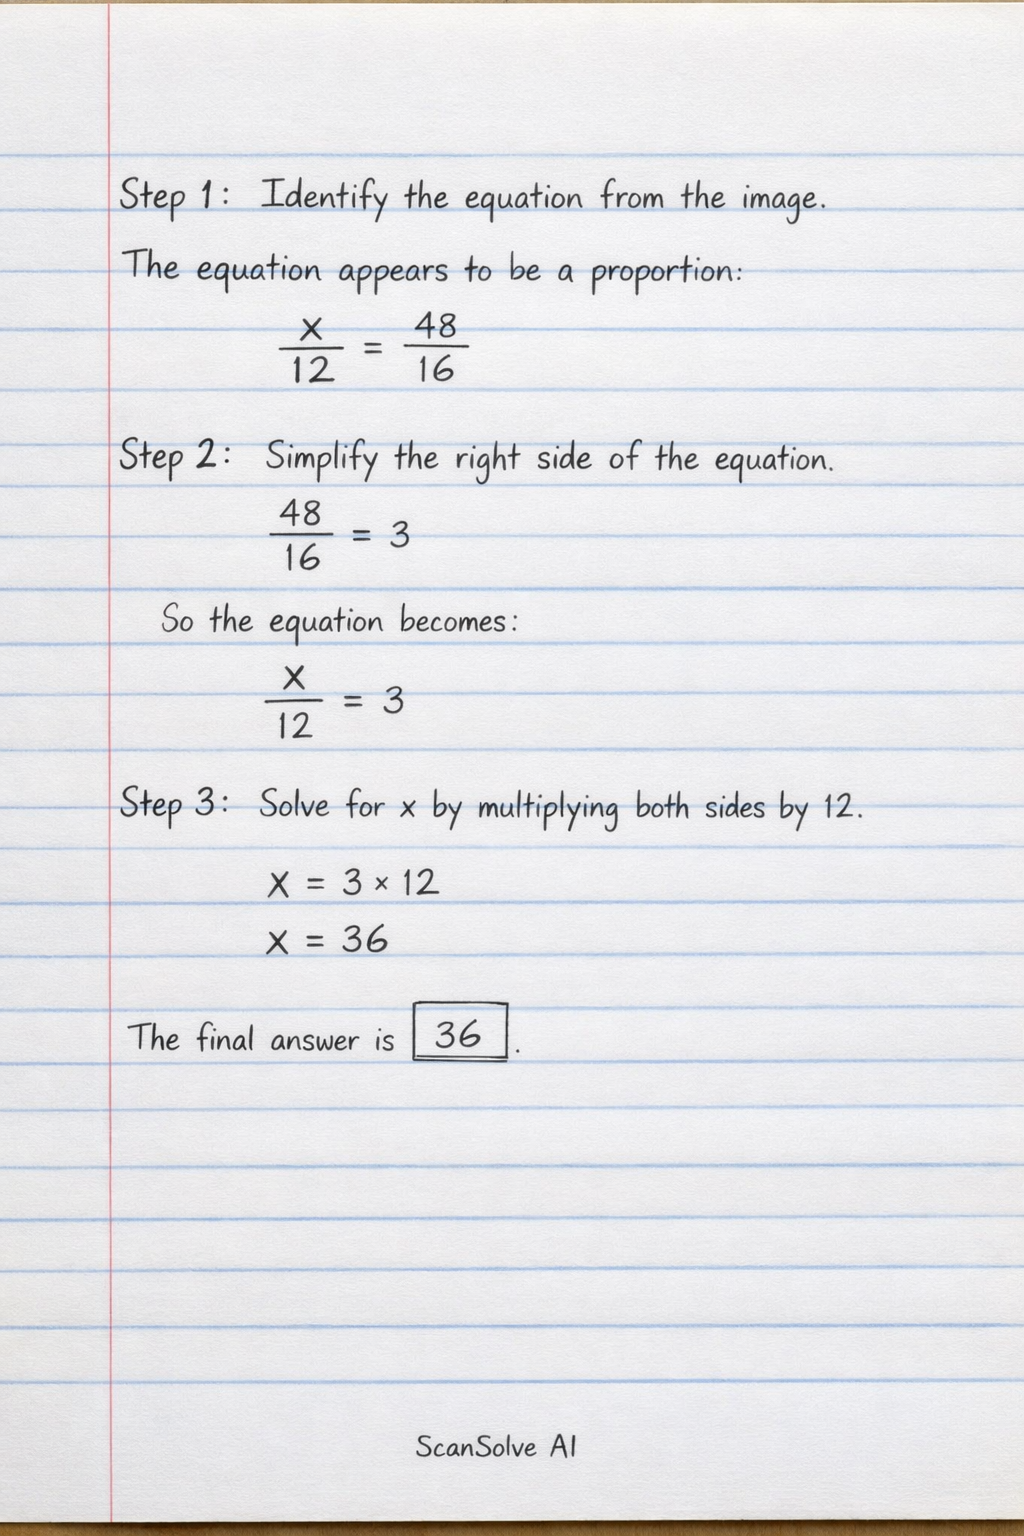 Step 1: Identify the equation from the image.
The equation appears to be a proportion:
x/12 = 48/16
Step 2: Simplify the right side of the equation.
48/16 = 3
So the equation becomes:
x/12 = 3
Step 3: Solve for x by multiplying both sides by 12.
x = 3 × 12
x = 36
The final answer is 36.
ScanSolve AI